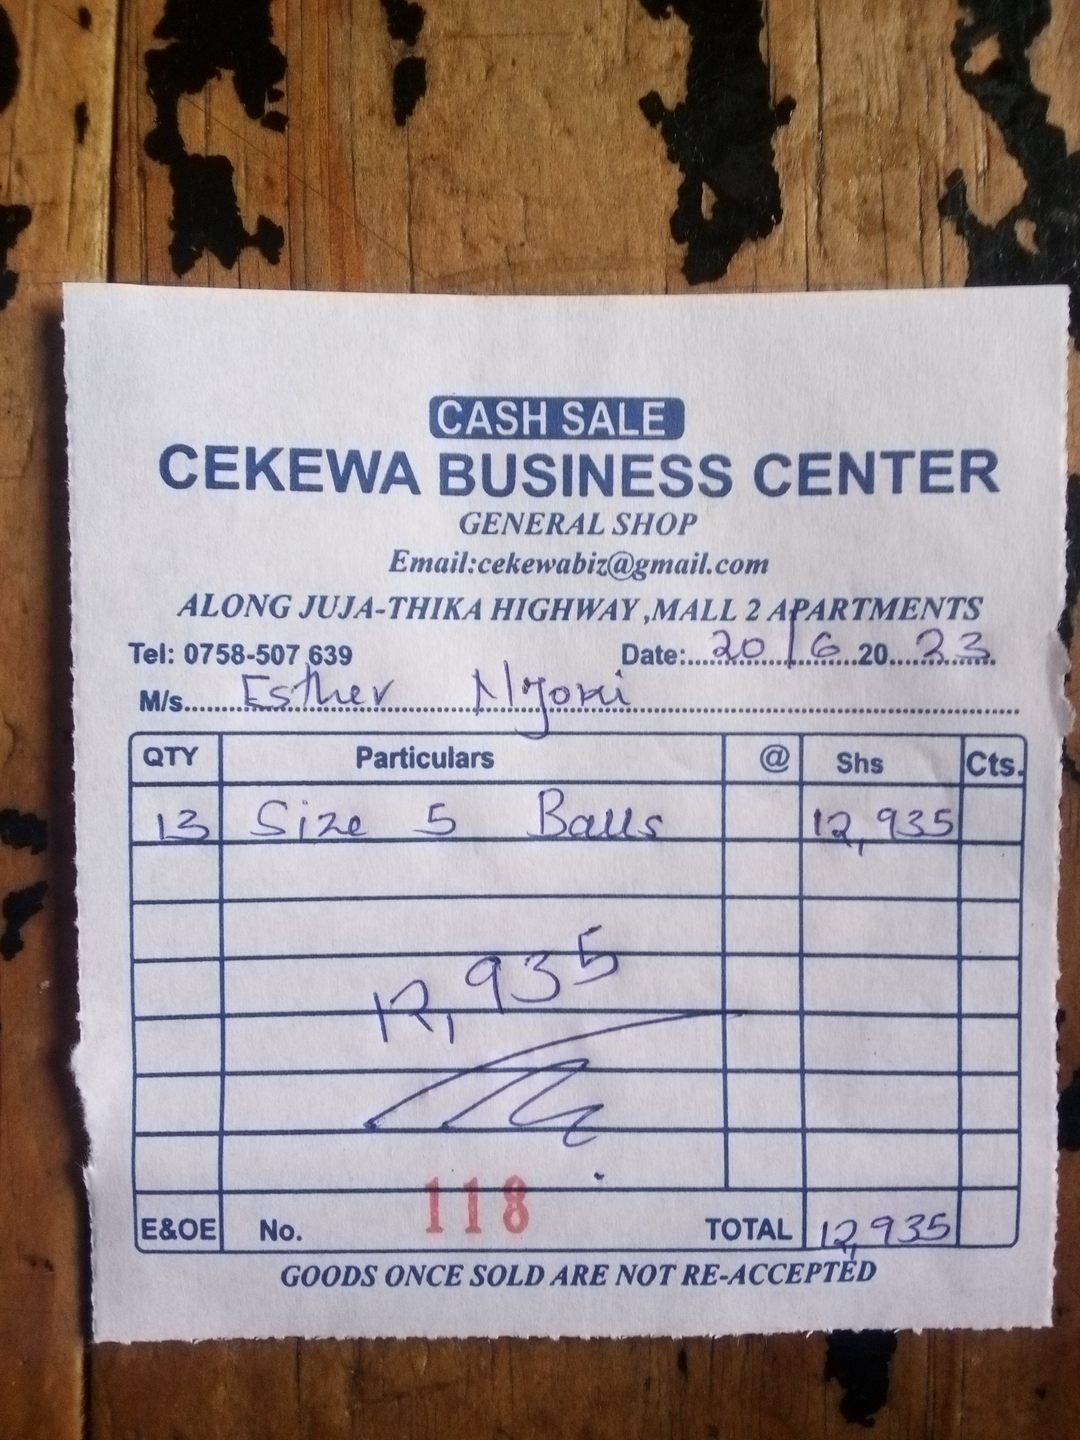 CASH SALE
CEKEWA BUSINESS CENTER
GENERAL SHOP
Email:cekewabiz@gmail.com
ALONG JUJA-THIKA HIGHWAY ,MALL 2 APARTMENTS
Tel: 0758-507 639 Date:...20/6...20...23...
M/s...Esther Njoki...
QTY Particulars @ Shs Cts.
13 Size 5 Balls 12,935
12,935
E&OE No. 118 TOTAL 12,935
GOODS ONCE SOLD ARE NOT RE-ACCEPTED